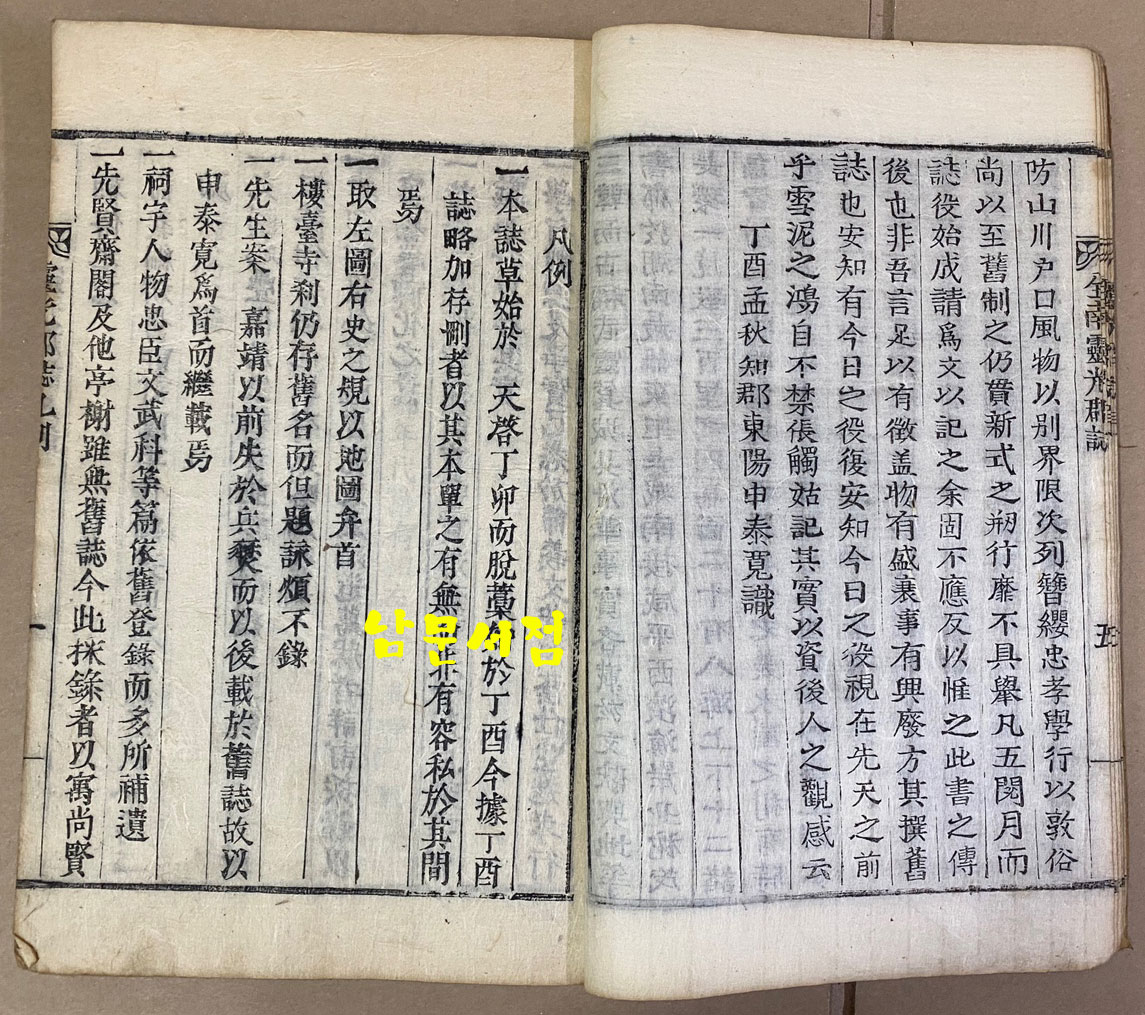 全南靈光郡誌
五
坊山川戶口風物以別界限次列簪纓忠孝學行以敦俗
尚以至舊制之仍貫新式之刱行靡不具擧凡五閱月而
誌役始成請爲文以記之余固不應反以惟之此書之傳
後也非吾言足以有徵盖物有盛衰事有興廢方其撰舊
誌也安知有今日之役復安知今日之役視在先天之前
乎雪泥之鴻自不禁張觸姑記其實以資後人之觀感云
丁酉孟秋知郡東陽申泰寬識
凡例
一本誌草始於 天啓丁卯而脫藁 於丁酉今據丁酉
誌略加存刪者以其本單之有無 非有容私於其間
焉
一取左圖右史之規以地圖弁首
一樓臺寺刹仍存舊名而但題詠煩不錄
一先生案 嘉靖以前失於兵燹而以後載於舊誌故以
申泰寬爲首而繼載焉
一祠宇人物忠臣文武科等篇依舊登錄而多所補遺
一先賢齋閣及他亭榭雖無舊誌今此採錄者以寓尚賢
靈光郡誌凡例
一
남문서점